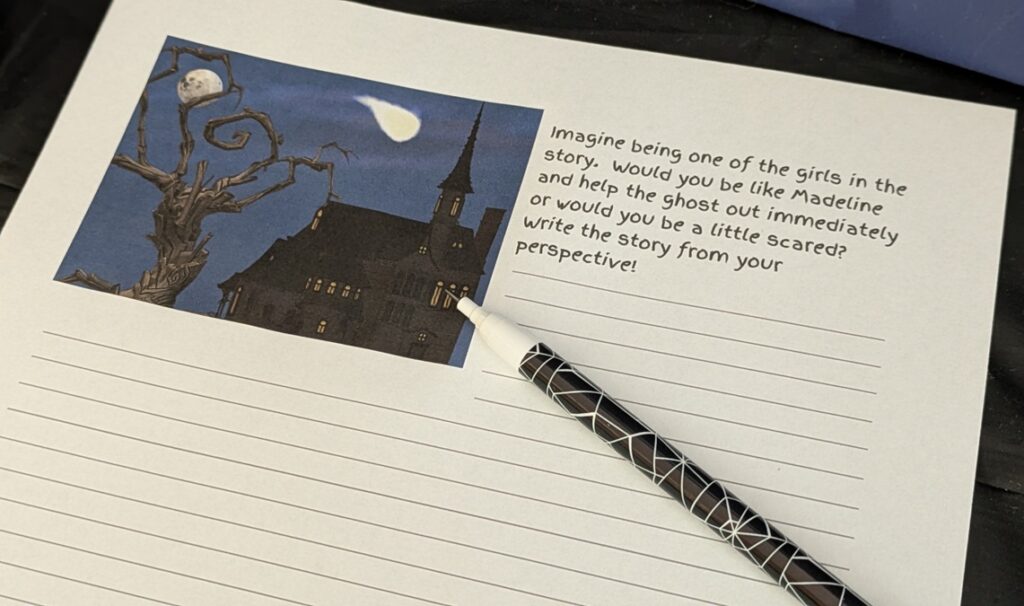 Imagine being one of the girls in the
story. Would you be like Madeline
and help the ghost out immediately
or would you be a little scared?
Write the story from your
perspective!